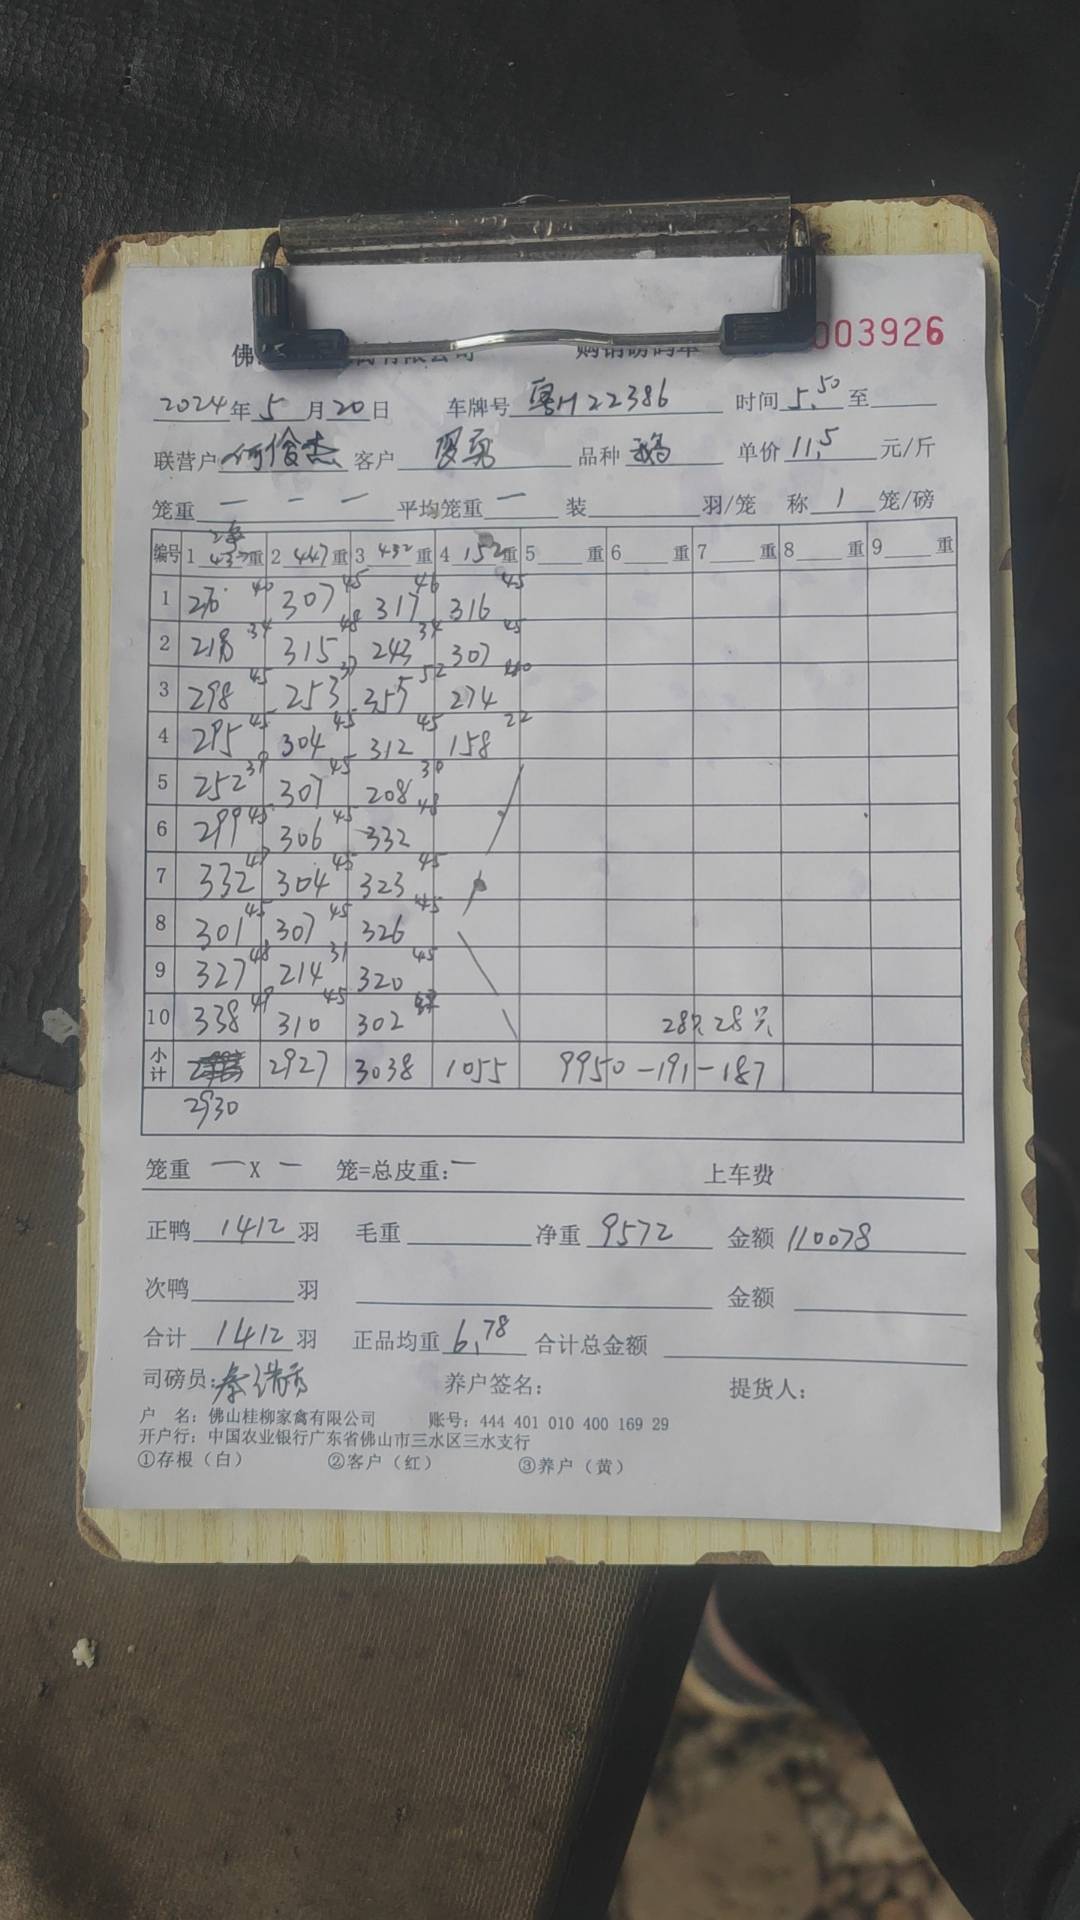 003926
2024年5月20日 车牌号 粤H22386 时间5.50至
联营户 何俊杰 客户 品种 鹅 单价 11.5 元/斤
笼重 一 一 一 平均笼重 一 装 羽/笼 称 1 笼/磅
编号 1 重 2 447重 3 432重 4 152重 5 重 6 重 7 重 8 重 9 重
1 40 307 45 317 46 316 45
2 218 34 315 48 243 34 307 45
3 298 45 253 37 355 52 274 40
4 295 45 304 45 312 45 158 22
5 252 39 307 45 208 30
6 299 45 306 45 332 48
7 332 47 304 45 323 45
8 301 45 307 45 326 45
9 327 48 214 31 320 45
10 338 49 310 45 302 28只 28只
小计 2927 3038 1055 9950-191-187
2930
笼重 一X一 笼=总皮重:一 上车费
正鸭 1412 羽 毛重 净重 9572 金额 110078
次鸭 羽 金额
合计 1412 羽 正品均重 6.78 合计总金额
司磅员: 养户签名: 提货人:
户 名: 佛山桂柳家禽有限公司 账号: 444 401 010 400 169 29
开户行: 中国农业银行广东省佛山市三水区三水支行
①存根（白） ②客户（红） ③养户（黄）